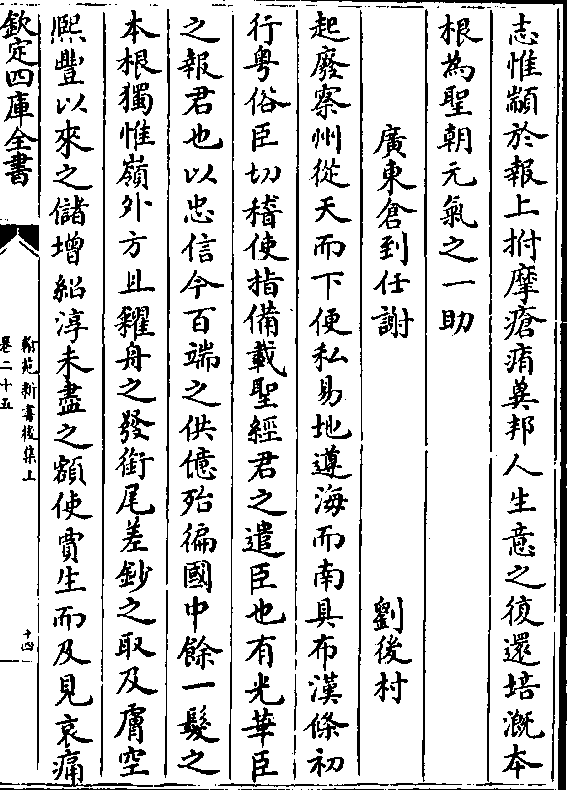 志惟顓於報上拊摩瘡痏冀邦人生意之復還培溉本
根為聖朝元氣之一助
廣東倉到任謝 劉後村
起廢察州從天而下便私易地遵海而南具布漢條初
行粤俗臣切稽使指備載聖經君之遣臣也有光華臣
之報君也以忠信今百端之供億殆徧國中餘一髮之
本根獨惟嶺外方且糴舟之發銜尾差鈔之取及膚空
熈豐以來之儲增紹淳未盡之額使賈生而及見哀痛
欽定四庫全書
翰苑新書後集上
卷二十五
十四